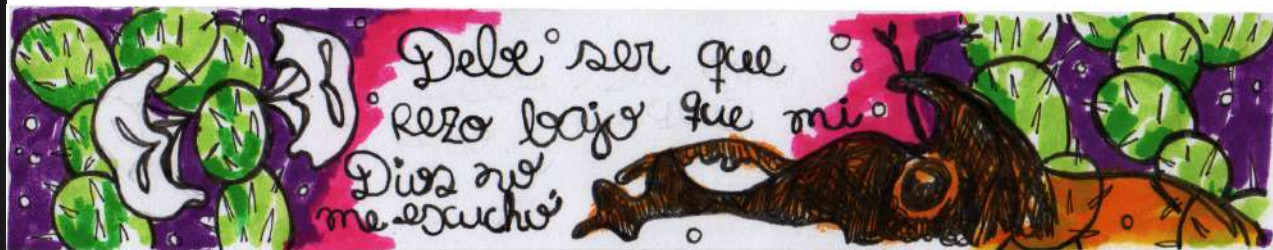 Debe ser que
rezo bajo que mi
Dios no
me escuchó